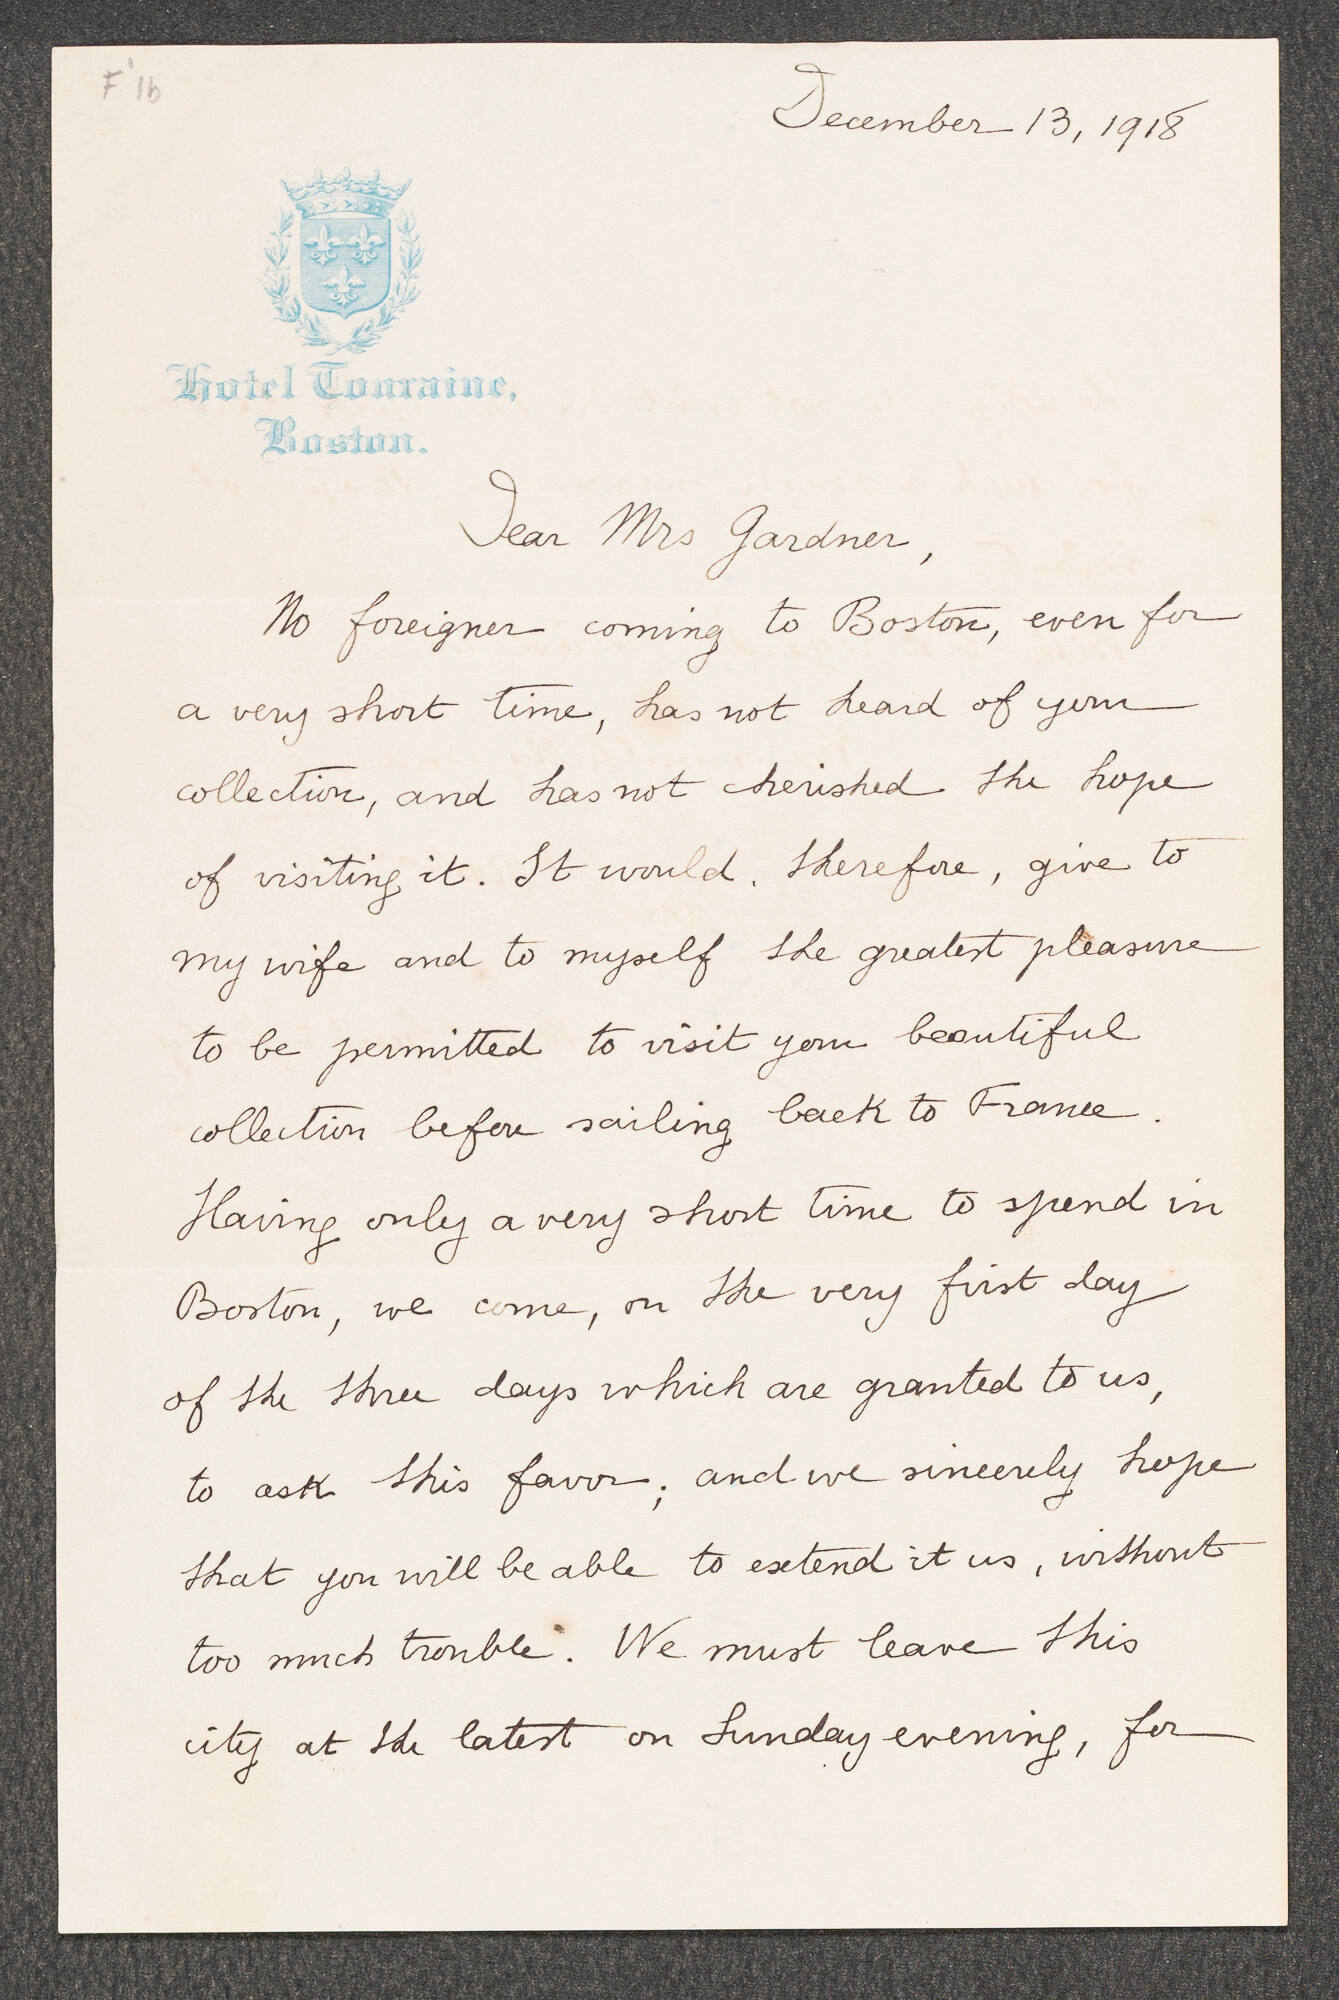 F'16
December 13, 1918
Hotel Touraine,
Boston.
Dear Mrs Gardner,
No foreigner coming to Boston, even for
a very short time, has not heard of your
collection, and has not cherished the hope
of visiting it. It would, therefore, give to
my wife and to myself the greatest pleasure
to be permitted to visit your beautiful
collection before sailing back to France.
Having only a very short time to spend in
Boston, we come, on the very first day
of the three days which are granted to us,
to ask this favor; and we sincerely hope
that you will be able to extend it us, without
too much trouble. We must leave this
city at the latest on Sunday evening, for